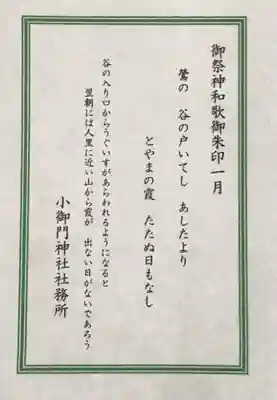 御祭神和歌御朱印一月
鶯の　谷の戸いてし　あしたより
とやまの霞　たたぬ日もなし
谷の入り口からうぐいすがあらわれるようになると
翌朝には人里に近い山から霞が　出ない日がないであろう
小御門神社社務所